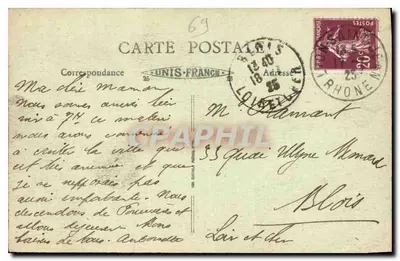 69
CARTE POSTALE
Correspondance
UNIS-FRANCE
Adresse
BLOIS
13 40
18
25
LOIR-ET-CHER
RHONE
25
20
Ma chère maman
Nous sommes arrivés bien
ce matin
nous avons commencé
à visiter la ville qui
est très ancienne et que
je ne supposais pas
aussi importante. Nous
descendons de Fourvière et
allons déjeuner. Bons
baisers de tous. Antoinette
M. Diamant
33 Quai Ulysse Besnard
Blois
Loir et Cher
PHILAPHIL